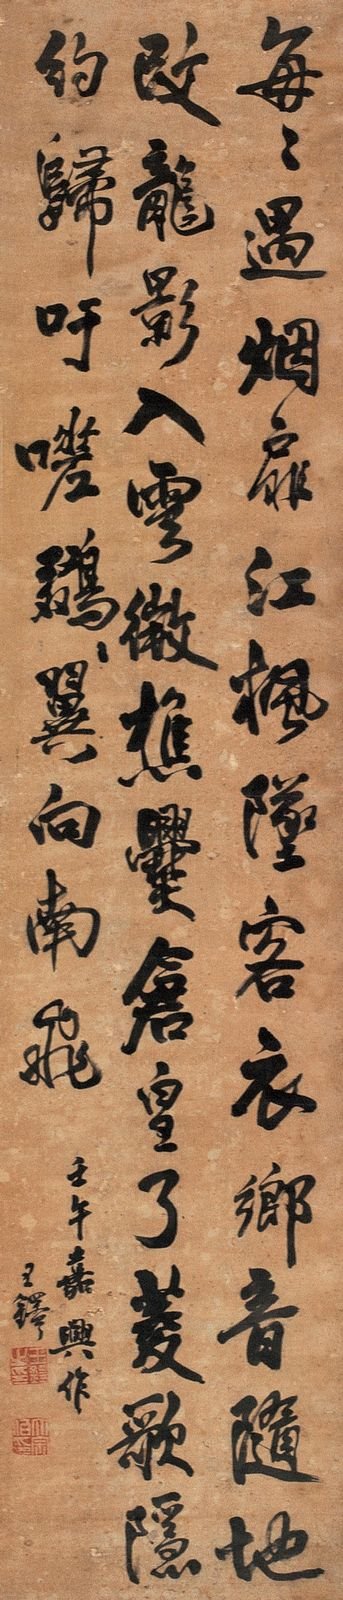 每〻遇烟扉江楓墜客衣鄉音隨地
改龍影入雲微樵爨倉皇了菱歌隱
約歸吁嗟鵶〻翼向南飛
壬午嘉興作
王鐸